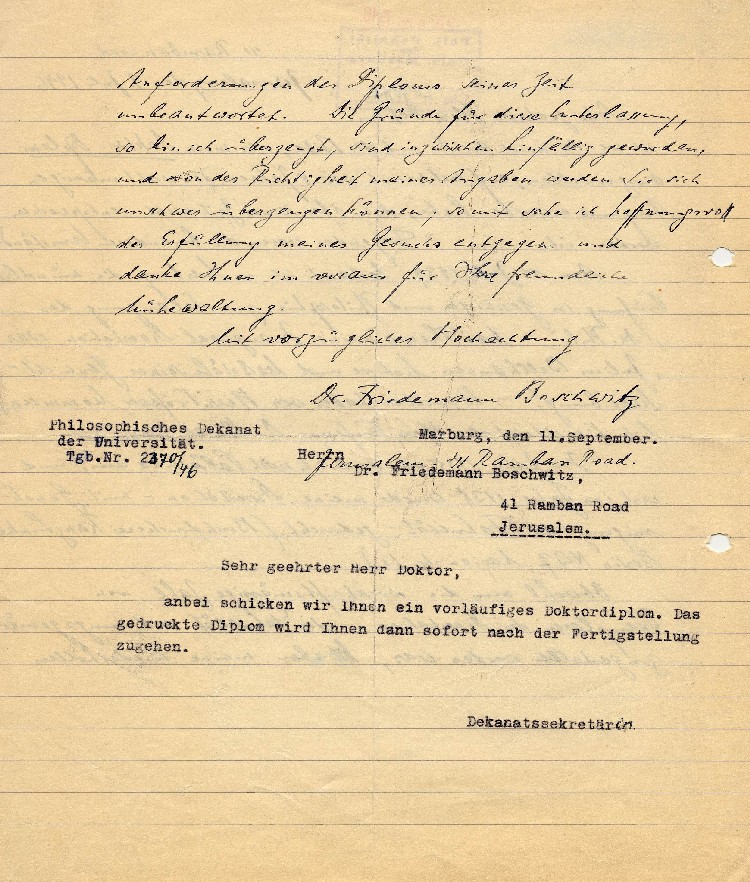 Anforderungen des Diploms seiner Zeit
unbeantwortet. Die Gründe für diese Unterlassung,
so bin ich überzeugt, sind inzwischen hinfällig geworden,
und von der Richtigkeit meiner Angaben werden Sie sich
unschwer überzeugen können; somit sehe ich hoffnungsvoll
der Erfüllung meines Gesuchs entgegen und
danke Ihnen im voraus für Ihre freundliche
Mühewaltung.
Mit vorzüglicher Hochachtung
Dr. Friedemann Boschwitz
Jerusalem, 41 Ramban Road.
Philosophisches Dekanat
der Universität.
Tgb.Nr. 2370/46
Marburg, den 11.September.
Herrn
Dr. Friedemann Boschwitz,
41 Ramban Road
Jerusalem.
Sehr geehrter Herr Doktor,
anbei schicken wir Ihnen ein vorläufiges Doktordiplom. Das
gedruckte Diplom wird Ihnen dann sofort nach der Fertigstellung
zugehen.
Dekanatssekretärin